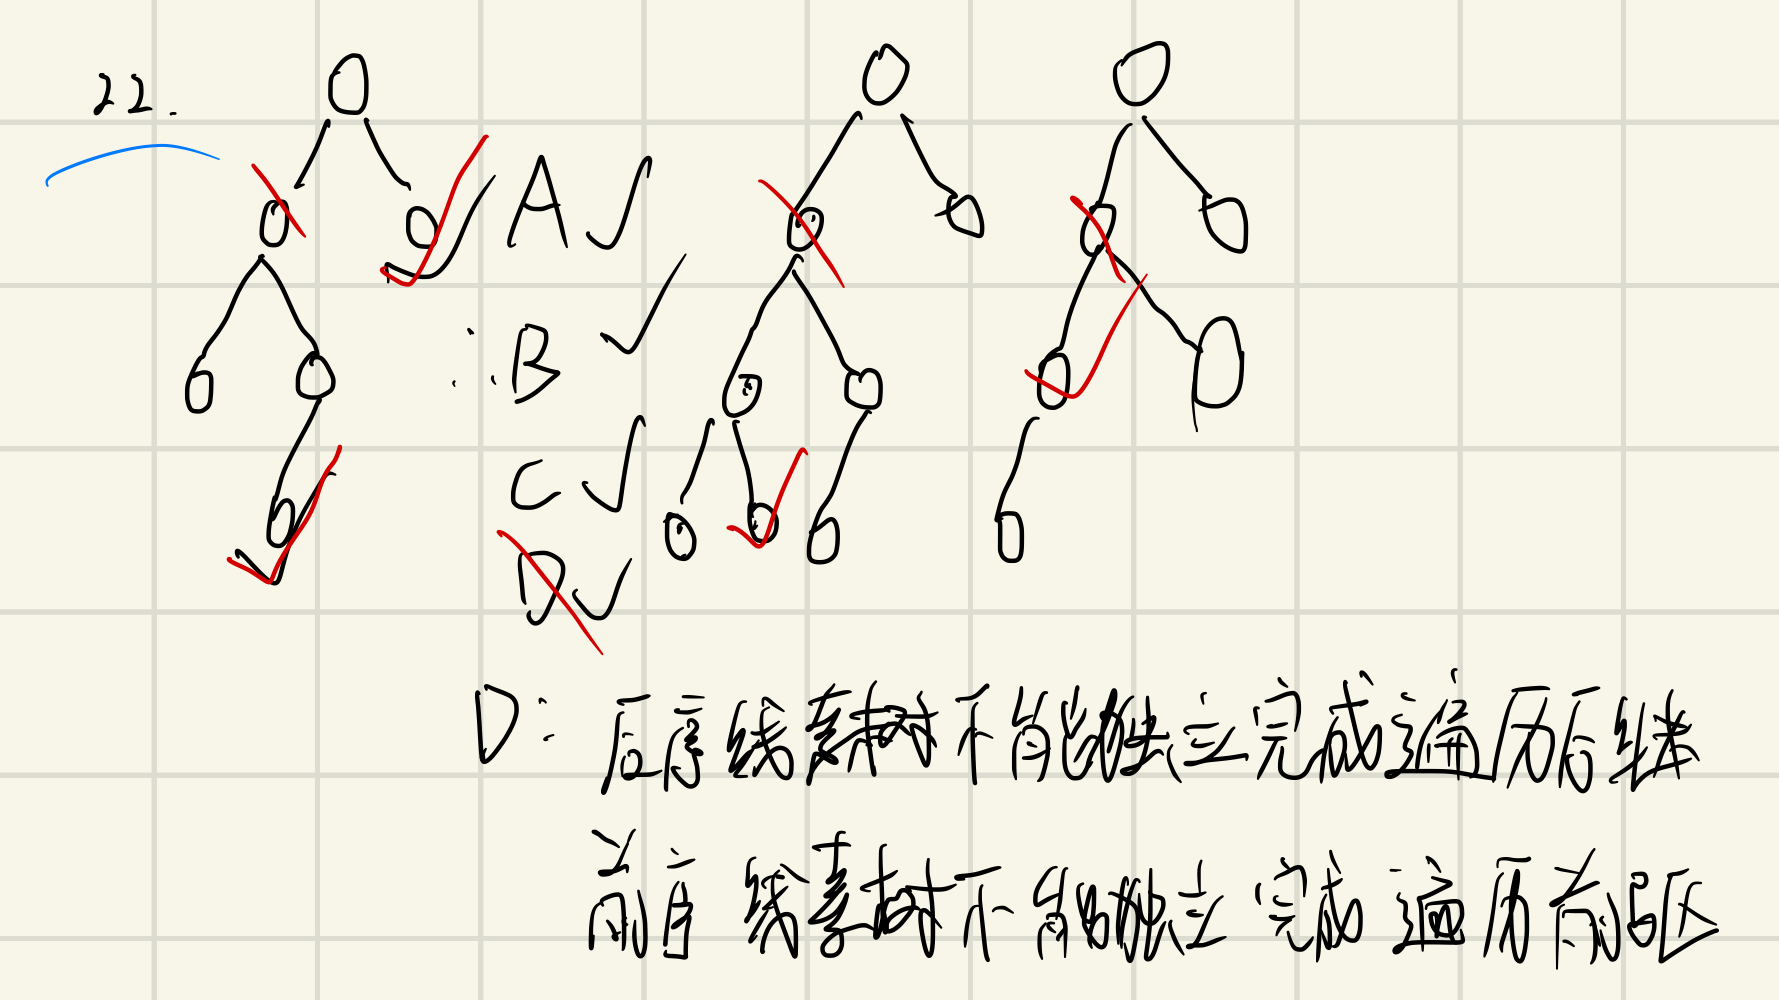 22.
A
B
C
D
D: 后序线索树不能独立完成遍历后继
前序线索树不能独立完成遍历前驱